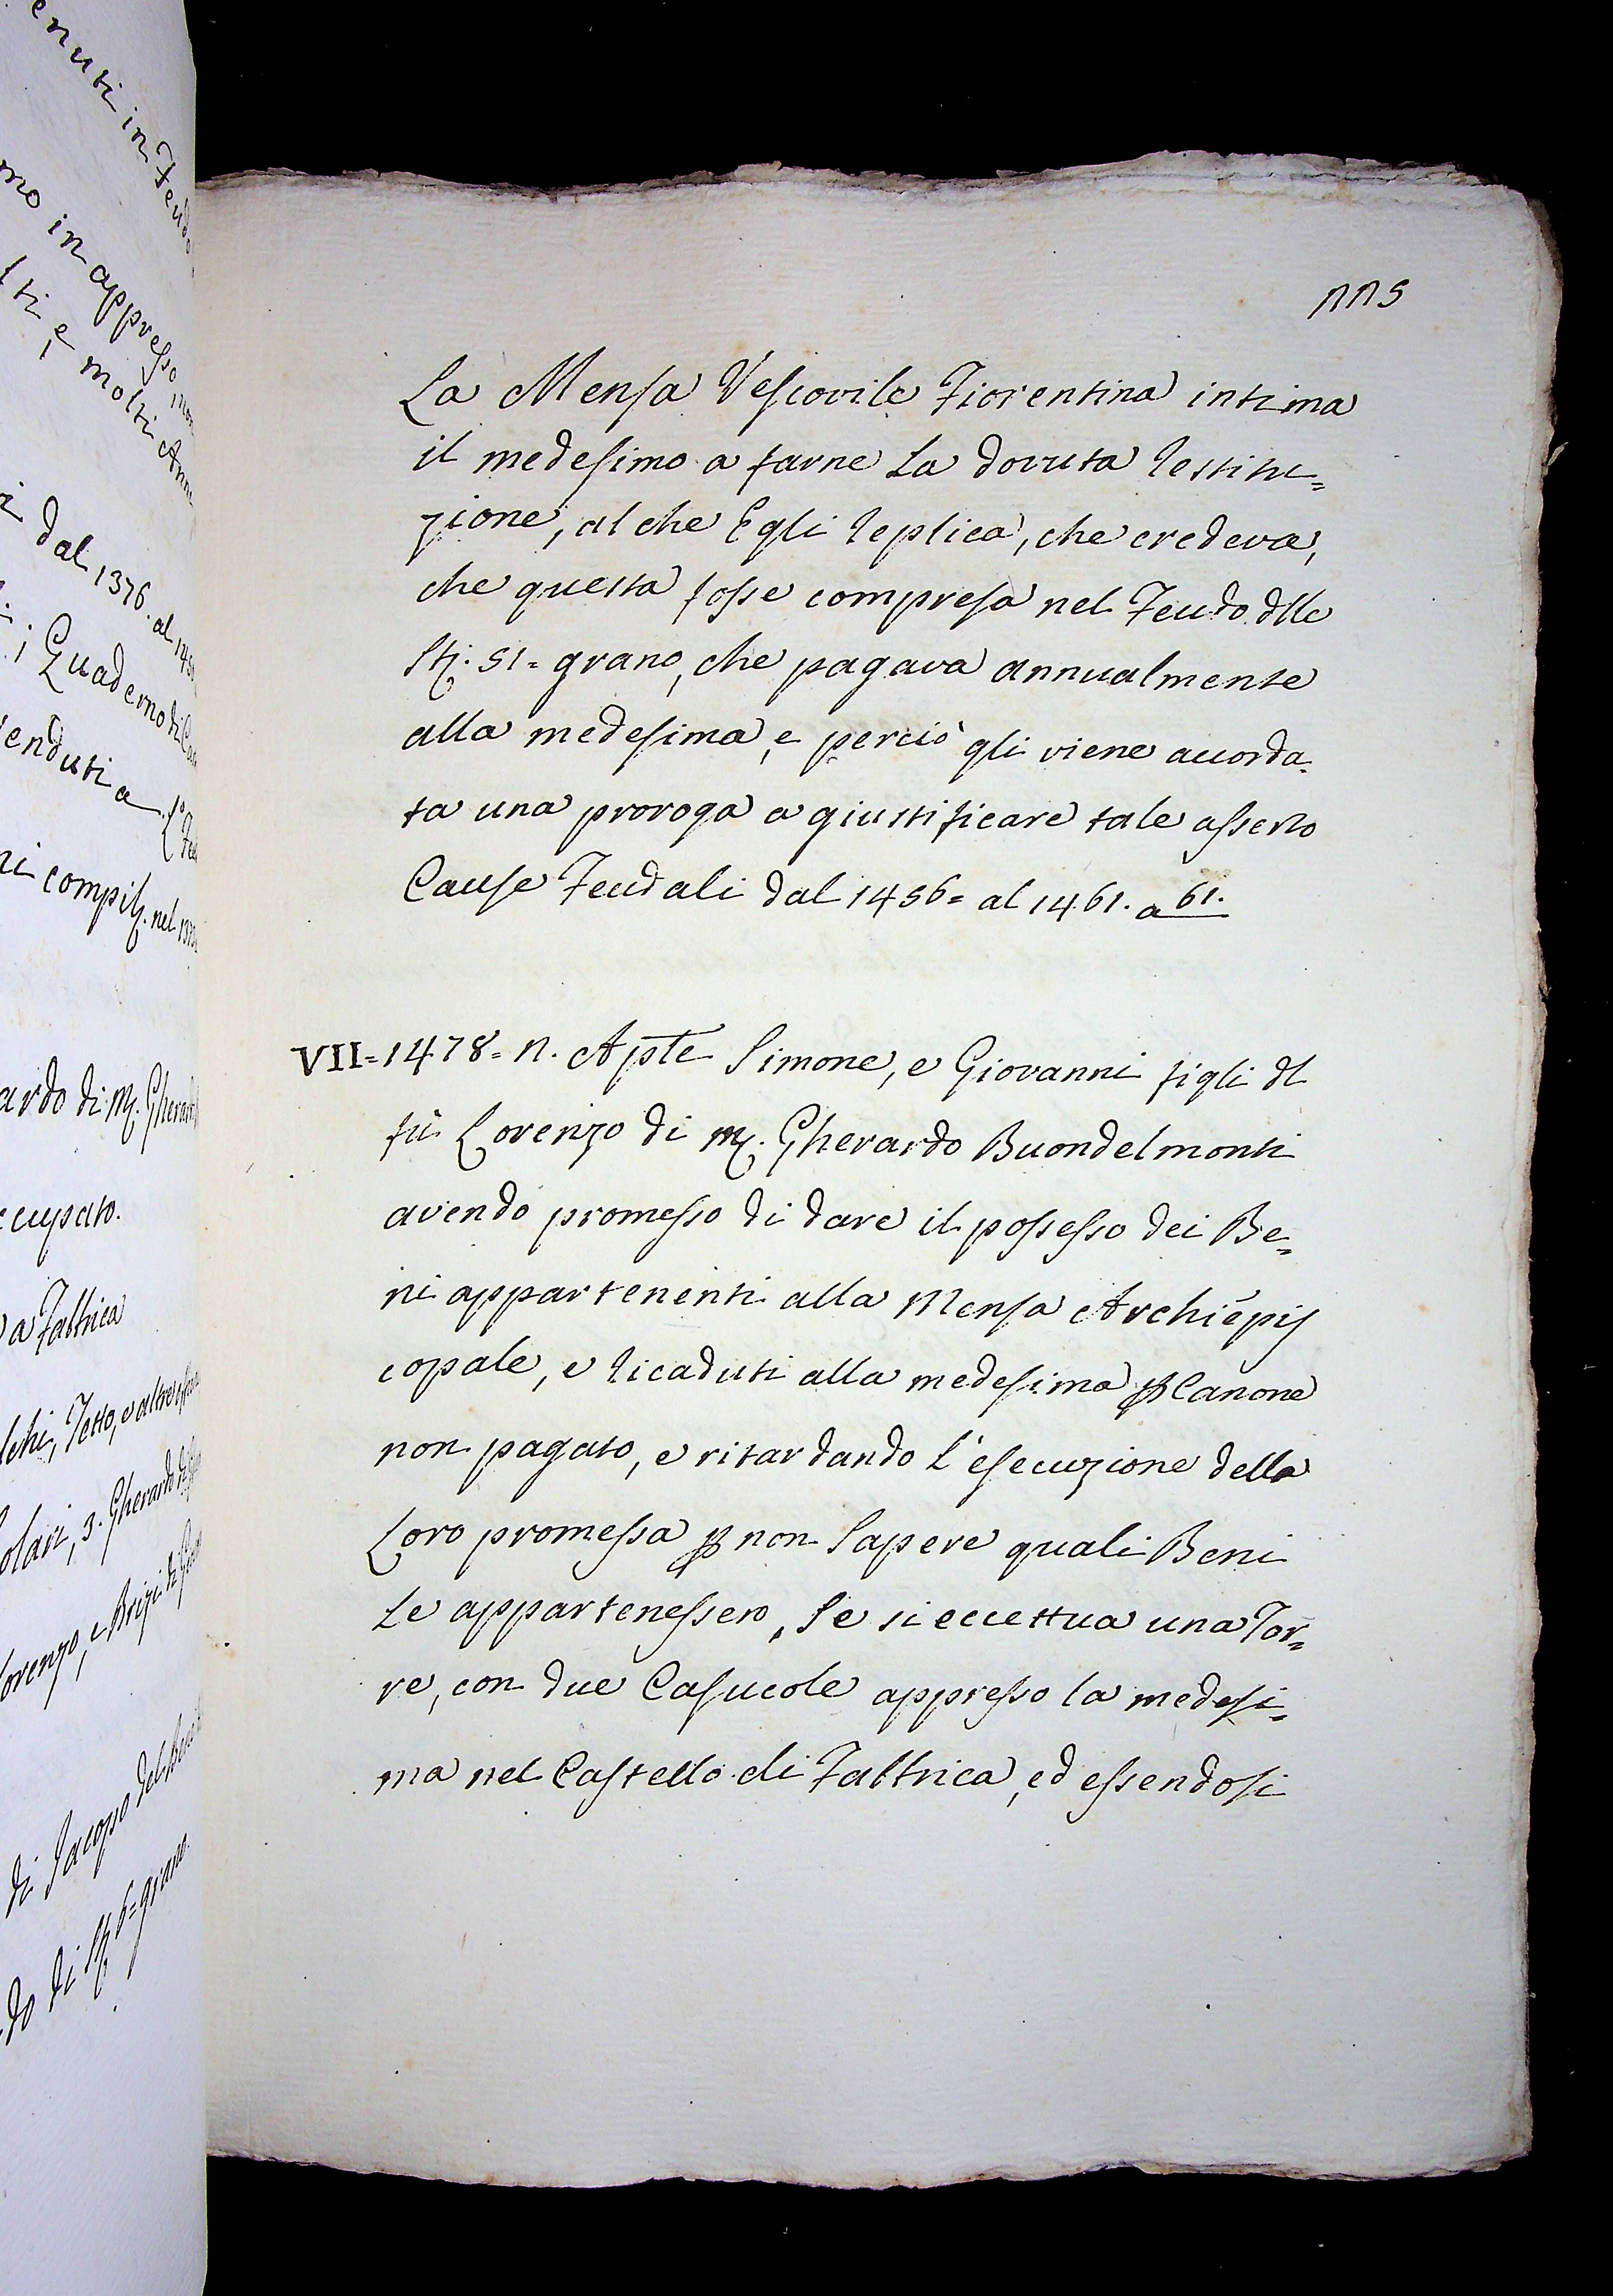 enuti in Feudo
mo in appresso
lti, e molti Anni
dal 1376. al
Quaderno di
enduti a
ni compil. nel
ardo di M. Gherardo
ccupato.
a Fabbrica
lchi, Tetto, e altre
olari, 3. Gherardo di
Lorenzo, e Brizi di
di Jacopo del
do di St. 6= grano.
115
La Mensa Vescovile Fiorentina intima
il medesimo a farne La dovuta restitu=
zione, al che Egli replica, che credeva,
che questa fosse compresa nel Feudo dlle
St. 51= grano, che pagava annualmente
alla medesima, e perciò gli viene accorda=
ta una proroga a giustificare tale asserto
Cause Feudali dal 1456= al 1461. a 61.
VII=1478= 11. Aple Simone, e Giovanni figli dl
fù Lorenzo di M. Gherardo Buondelmonti
avendo promesso di dare il possesso dei Be=
ni appartenenti alla Mensa Archiepis
copale, e ricaduti alla medesima p Canone
non pagato, e ritardando l'esecuzione della
Loro promessa p non Sapere quali Beni
Le appartenessero, Se si eccettua una Tor=
re, con due Casucole appresso la medesi=
ma nel Castello di Fabbrica, ed essendosi